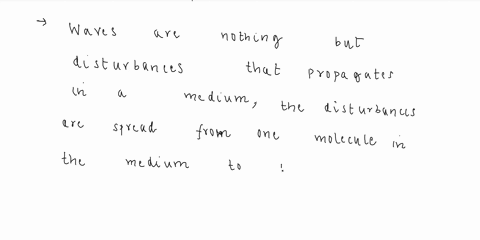 → Waves are nothing but
disturbances that propagates
in a medium, the disturbances
are spread from one molecule in
the medium to